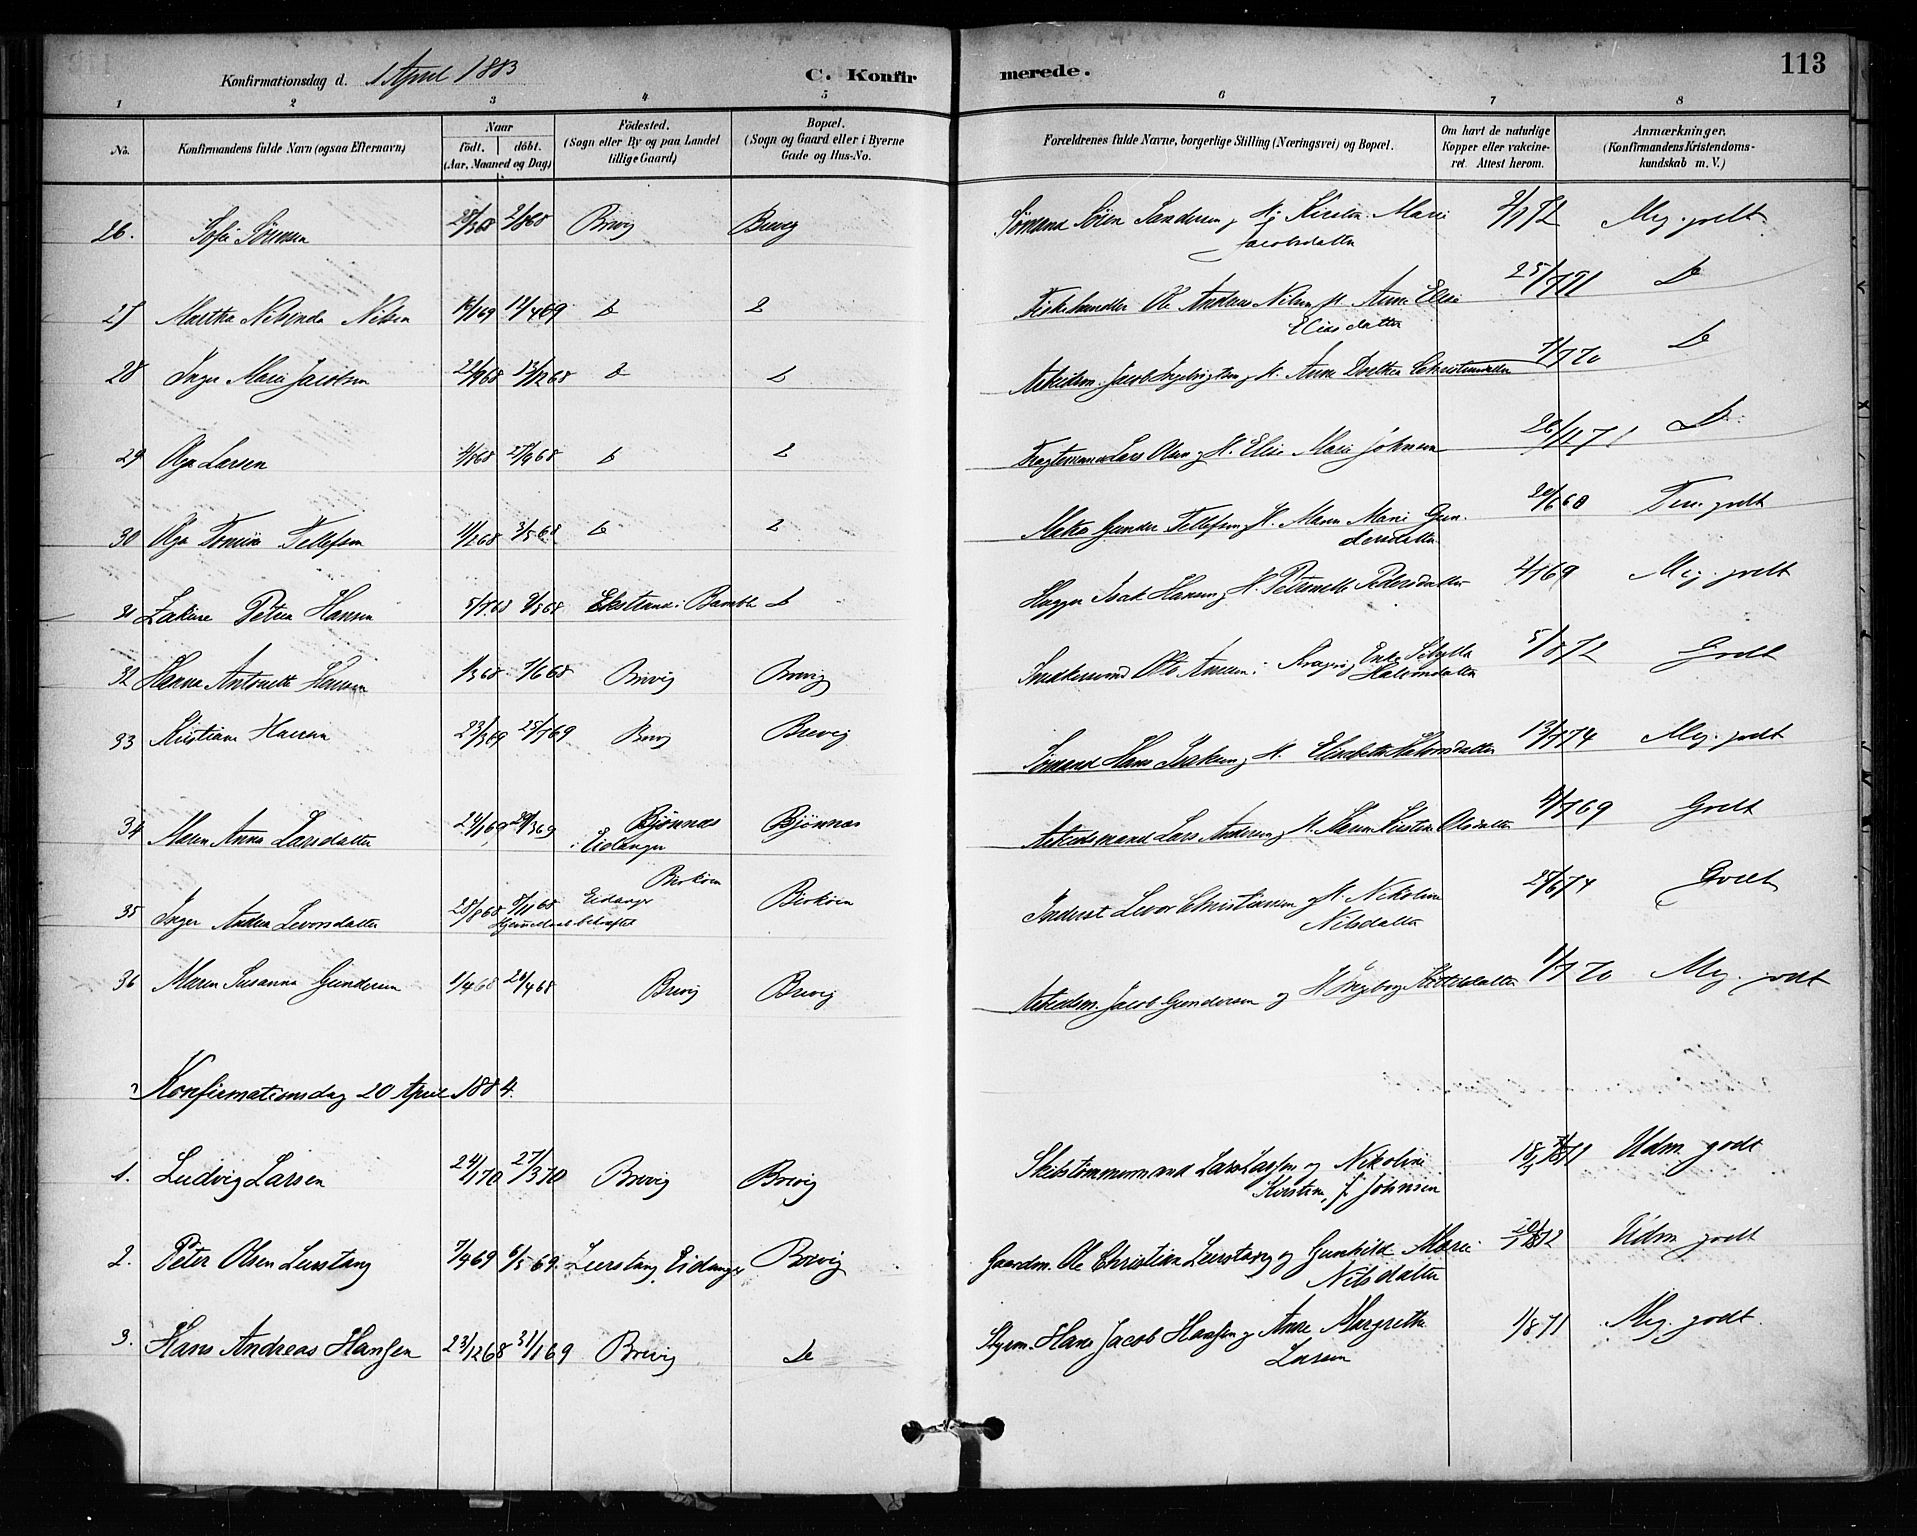 113
Konfirmationsdag d. 1 April 1883
C. Konfirmerede.
1 2 3 4 5 6 7 8
No.
Konfirmandens fulde Navn (ogsaa Efternavn)
Naar
födt. döbt.
(Aar, Maaned og Dag)
Födested.
(Sogn eller By og paa Landet tillige Gaard)
Bopæl.
(Sogn og Gaard eller i Byerne Gade og Hus-No.
Forældrenes fulde Navne, borgerlige Stilling (Næringsvei) og Bopæl.
Om havt de naturlige Kopper eller vakcineret. Attest herom.
Anmærkninger.
(Konfirmandens Kristendomskundskab m. V.)
26. Sofie Sörensen Brevig Brevig Sömand Sören Sandersen og H. Kirsten Marie Jacobsdatter Meg. godt
27 Martha Nilsinda Nilsen D D Fiskehandler Ole Andreas Nilsen og H. Anne Elise Eliasdatter 25/1 71 D
28 Inger Marie Jacobsen D D Arbeidsm. Jacob Ingebrigtsen og H. Anne Dorthea Christensdatter D
29 Olga Larsen D D Fragtemand Lars Olsen og H. Elise Marie Johnsen D
30 Olga Tomine Tellefsen 3/5 68 D D Gunder Tellefsen og H. Maren Marie Gundersdatter Tem. godt
31 Zakine Petrea Hansen Bamble D Hugger Isak Hansen og H. Petronelle Pedersdatter Meg. godt
32 Hanna Antonette Hansen 1/3 68 7/6 68 Brevig Brevig Snedkersvend Otto Ansen i Kragerø, Sibylla Halvorsdatter 5/8 72 Godt
33 Kristiane Hansen 23/3 69 25/7 69 Brevig Brevig Sömand Hans Isaksen og H. Elisabeth Halvorsdatter 13/7 74 Meg. godt
34 Maren Anna Larsdatter 24/1 69 Bjönnæs i Eidanger Bjönnæs Arbeidsmand Lars Andersen og H. Maren Kirstine Olsdatter Godt
35 Inger Andrea Levorsdatter 28/8 68 8/11 68 Hjemmedaab bekræftet Eidanger Birköen Birköen Inderst Levor Christiansen og H. Nikoline Nilsdatter Godt
36 Maren Susanna Gundersen 1/4 68 Brevig Brevig Arbeidsm. Jacob Gundersen og H. Ingeborg Kittilsdatter 1/7 70 Meg. godt
Konfirmationsdag 20 April 1884.
1. Ludvig Larsen 24/1 70 27/3 70 Brevig Brevig Skibstömmermand Lars Larssen og Nikoline Kirstine, f. Johnsen Udm godt
2. Peter Olsen Lerstang 7/4 69 6/5 69. Leerstang, Eidanger Brevig Gaardm. Ole Christian Leerstang og Gunhild Marie Nilsdatter Udm godt
3. Hans Andreas Hansen 23/12 68 31/1 69 Brevig D Styrm. Hans Jacob Hansen og Anne Margrethe Larsen 1/8 71 Meg. godt